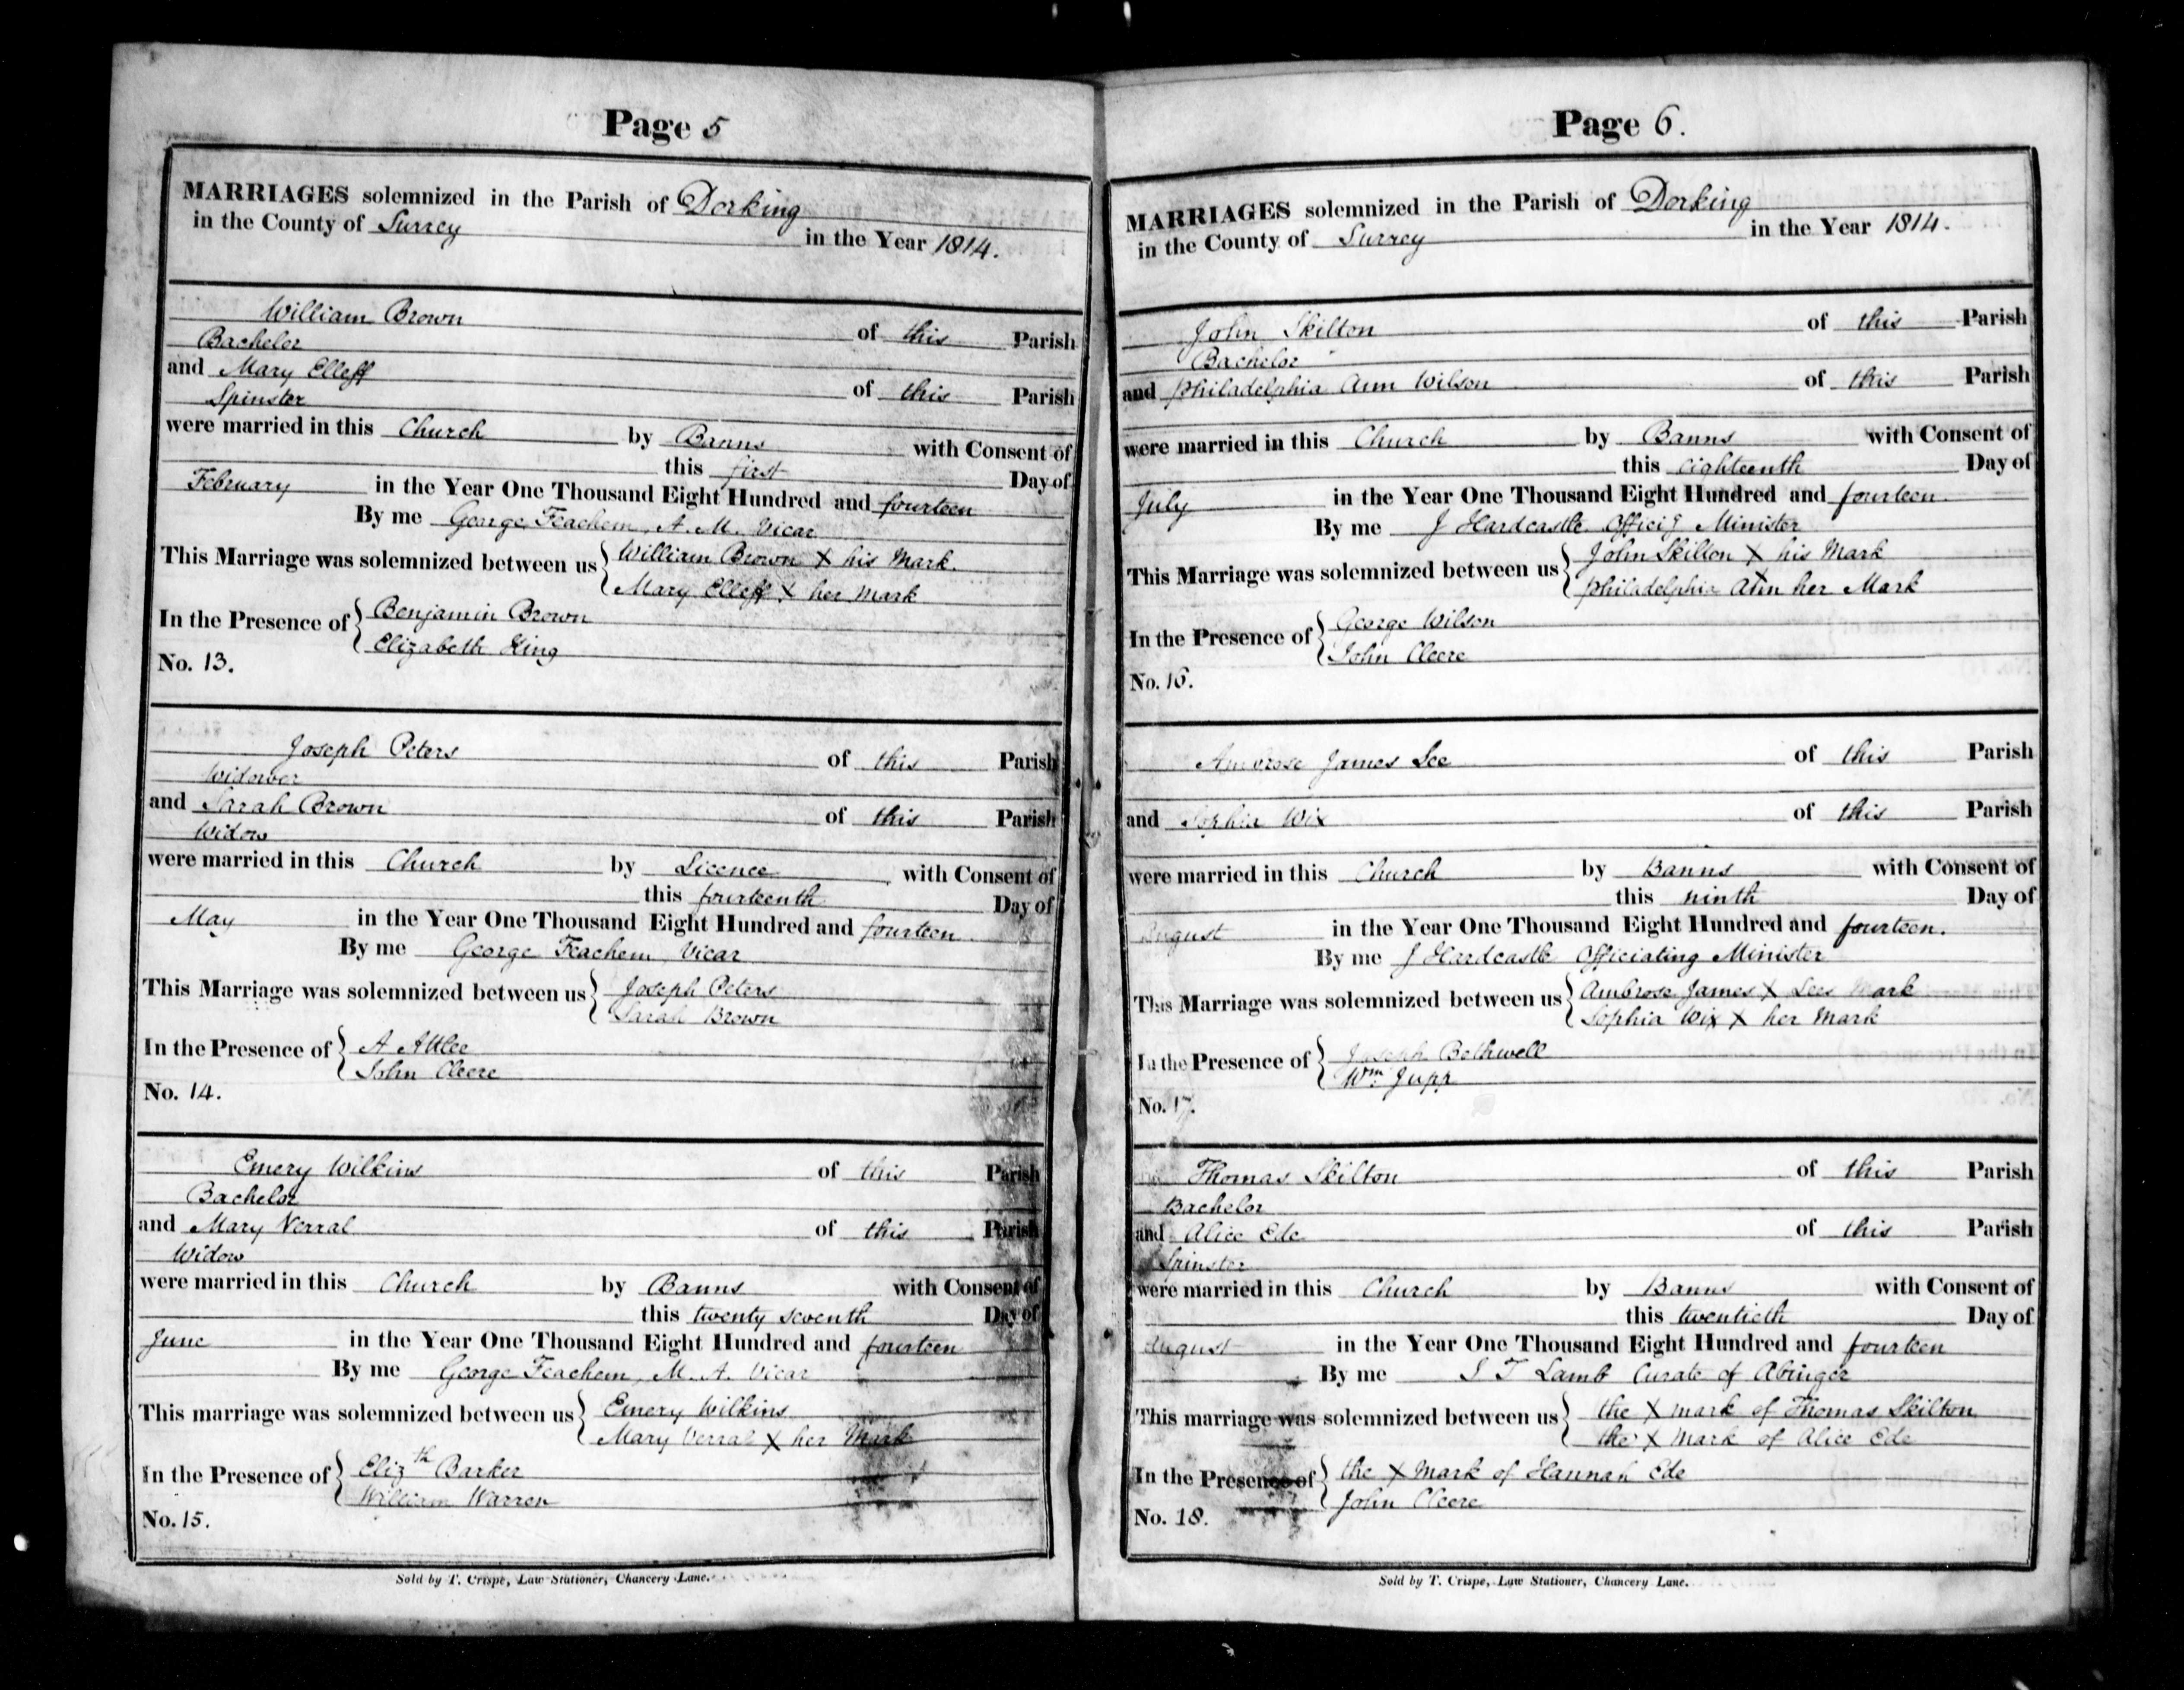 Page 5
MARRIAGES solemnized in the Parish of Dorking
in the County of Surrey in the Year 1814.
William Brown of this Parish
Bachelor
and Mary Elleff of this Parish
Spinster
were married in this Church by Banns with Consent of
this first Day of
February in the Year One Thousand Eight Hundred and fourteen
By me George Feachem, A. M. Vicar
This Marriage was solemnized between us William Brown X his Mark.
Mary Elleff X her Mark
In the Presence of Benjamin Brown
Elizabeth King
No. 13.
Joseph Peters of this Parish
Widower
and Sarah Brown of this Parish
Widow
were married in this Church by Licence with Consent of
this fourteenth Day of
May in the Year One Thousand Eight Hundred and fourteen
By me George Feachem, Vicar
This Marriage was solemnized between us Joseph Peters
Sarah Brown
In the Presence of A Attlee
John Cleere
No. 14.
Emery Wilkins of this Parish
Bachelor
and Mary Verral of this Parish
Widow
were married in this Church by Banns with Consent of
this twenty seventh Day of
June in the Year One Thousand Eight Hundred and fourteen
By me George Feachem, M. A. Vicar
This marriage was solemnized between us Emery Wilkins
Mary Verral X her Mark
In the Presence of Elizth Barker
William Warren
No. 15.
Sold by T. Crispe, Law Stationer, Chancery Lane.
Page 6.
MARRIAGES solemnized in the Parish of Dorking
in the County of Surrey in the Year 1814.
John Skilton of this Parish
Bachelor
and Philadelphia Ann Wilson of this Parish
were married in this Church by Banns with Consent of
this eighteenth Day of
July in the Year One Thousand Eight Hundred and fourteen.
By me J Hardcastle Officig Minister
This Marriage was solemnized between us John Skilton X his Mark
Philadelphia Ann her Mark
In the Presence of George Wilson
John Cleere
No. 16.
Ambrose James Lee of this Parish
and Sophia Wix of this Parish
were married in this Church by Banns with Consent of
this ninth Day of
August in the Year One Thousand Eight Hundred and fourteen.
By me J Hardcastle Officiating Minister
This Marriage was solemnized between us Ambrose James X Lees Mark
Sophia Wix X her Mark
In the Presence of Joseph Bothwell
Wm. Jupp
No. 17.
Thomas Skilton of this Parish
Bachelor
and Alice Ede of this Parish
Spinster
were married in this Church by Banns with Consent of
this twentieth Day of
August in the Year One Thousand Eight Hundred and fourteen
By me J T Lamb Curate of Abinger
This marriage was solemnized between us the X mark of Thomas Skilton
the X Mark of Alice Ede
In the Presence of the X Mark of Hannah Ede
John Cleere
No. 18.
Sold by T. Crispe, Law Stationer, Chancery Lane.